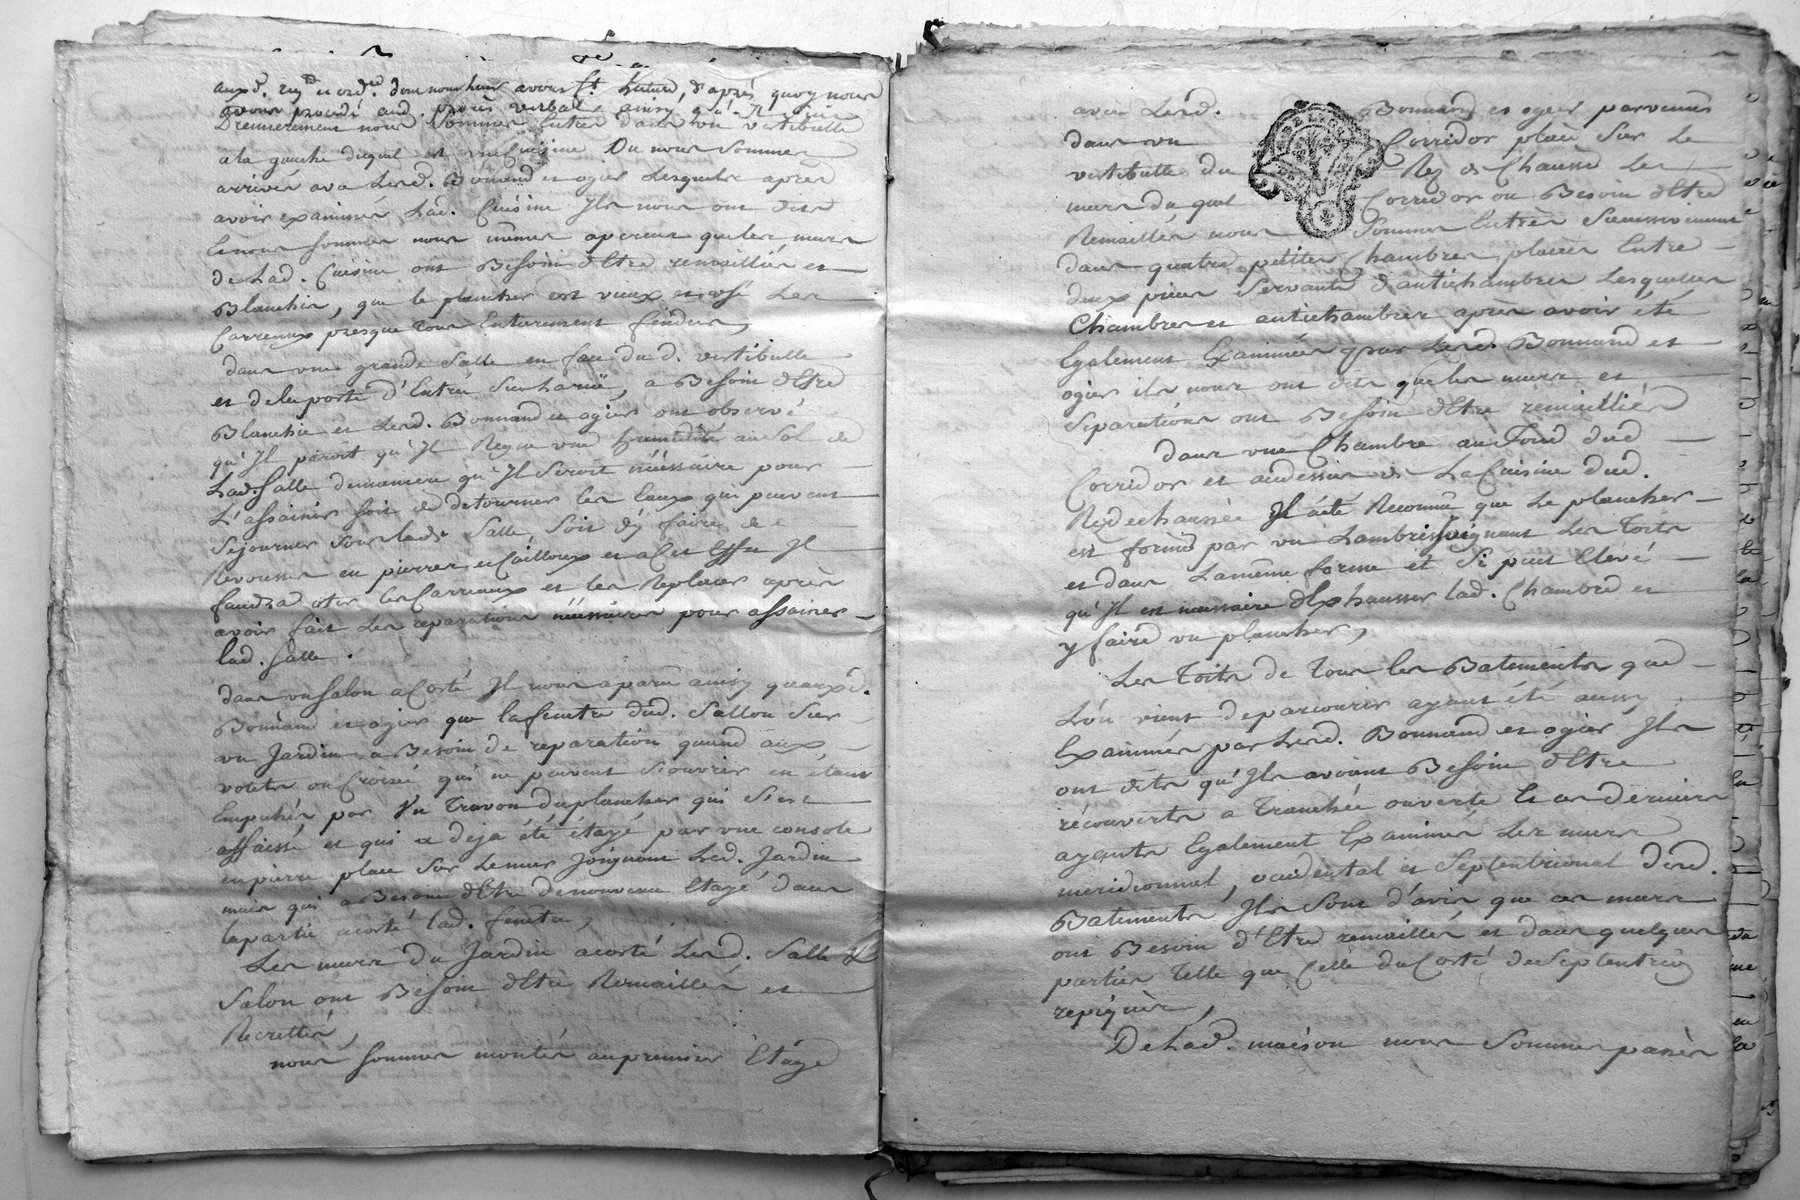 avons procédé aud. procès verbal ainsy qu'Il suit
Premierement nous sommes Entrés dans un vestibulle
a la gauche duquel est une Cuisine Ou nous sommes
arrivés avec Lesd. Bonnand et ogier Lesquels après
avoir examinné Lad. Cuisine Ils nous ont dit
Et nous sommes nous mêmes apercus que les murs
de Lad. Cuisine ont Besoin d'Etre remaillés et
Blanchis, que le plancher est vieux et usé Les
Carreaux presque tous Entierement fendus,
dans une grande Salle en face dud. vestibulle
et de la porte d'Entrée Sur la ruë, a Besoin d'Etre
Blanchie et Lesd. Bonnand et ogier ont observé
qu'Il paroit qu'Il Regne une humidité au Sol de
Lad. Salle de maniere qu'Il Seroit nécessaire pour
L'assainir soit de detourner les Eaux qui peuvent
Sejourner Sous lade Salle, Soit d'y faire de
en pierres et Cailloux et a Cet Effet Il
faudra oter les Carreaux et les Replacer après
avoir fait Les reparations nécessaires pour assainir
lad. Salle.
dans un Salon a Corté Il nous a paru ainsy qu'auxd.
Bonnand et ogier que la fenetre dud. Sallon Sur
un Jardin a Besoin de reparation quand aux
volets ou Croisée qui ne peuvent S'ouvrir en étant
Empechés par Un Travon du plancher qui S'est
affaissé et qui a deja été étayé par une console
en pierre place Sur Le mur Joignant Led. Jardin
mais qui a Besoin d'Etre de nouveau Etayé dans
la partie acorté lad. fenetre,
Les murs du Jardin acorté Lesd. Salle et
Salon ont Besoin d'Etre Remaillés et
Recrettés,
nous sommes montés au premier Etage
avec Lesd. Bonnand et ogier parvenus
dans un Corridor placé Sur Le
vestibulle du Rez de Chaussé Les
murs du quel Corridor ont Besoin d'Etre
Remaillés nous Sommes Entrés Successivement
dans quatre petites Chambres placées Entre
deux pieces Servants d'antichambres Lesquelles
Chambres et antichambres après avoir été
Egalement Examinées par Lesd. Bonnand et
ogier ils nous ont dits que les murs et
Separations ont Besoin d'Etre remaillés
dans une Chambre au Fond dud
Corridor et audessus de La Cuisine dud.
Rez de chaussée Il a été Reconnu que Le plancher
est formé par un Lambris joignant Les Toits
et dans La même forme et Si peu Elevé
qu'Il est necessaire d'Exhausser lad. Chambre et
y faire un plancher,
Les Toits de Tous les Batements que
L'on vient de parcourir ayant été aussy
Examinés par Lesd. Bonnand et ogier Ils
ont dits qu'Ils avoient Besoin d'Etre
récouverts a Tranchée ouverte Et ces derniers
ayants Egalement Examinés Les murs
meridionnel, occidental et Septentrional desd.
Batements, Ils Sont d'avis que ces murs
ont Besoin d'Etre remaillés et dans quelques
parties Telle que Celle du Corté de Septentrion
repiqués,
De Lad. maison nous Sommes passés